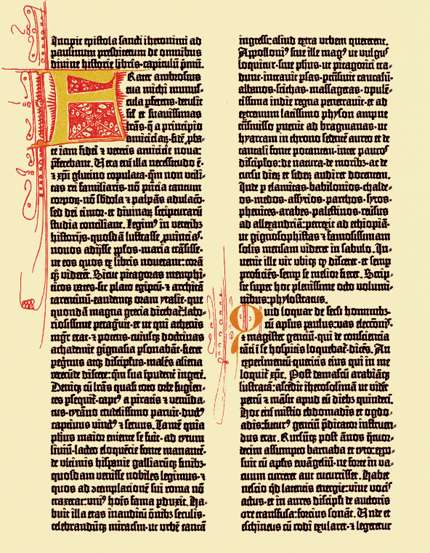 Incipit epistola sancti iheronimi ad
paulinum presbiterum de omnibus
divine historie libris. capitulū primū.
Frater ambrosius
tua michi munus-
cula pferens. detulit
sil' et suavissimas
lrās. q̄ a principio
amicicia℞. fidē pba-
te iam fidei et veteris amicicie nova:
pferebant. Vera enī illa necessitudo ē.
et xp̄i glutino copulata: quā non utili-
tas rei familiaris. nō pncia tantum
corpo℞. nō sbdola et palpās adulaco:
sed dei timor. et divina℞ scriptura℞
studia conciliant. Legimꝰ in veteribꝰ
historijs. quosdā lustrasse. puincias.
novos adijsse pplos. maria trāsisse:
ut eos quos ex libris noverant: coram
q̇ viderēt. Sicut pitagoras memphi-
ticos vates. sic plato egiptū. et architā
tarentinū. eandemq̨ oram ytalie. que
quondā magna grecia dicebat̄: labo-
riosissime peragravit. et ut qui athenis
mgr̄ erat. et potens. cuiusq̨ doctrinas
achademie gignasia psonabāt: fieret
pegrinus atq̨ discipulus. malēs aliena
verecūde discere: q̄ sua īpudent̄ ingeri.
Deniq̨ cū lrās quasi toto orbe fugien-
tes psequit̄. captꝰ a piratis et venūda-
tus. tyrāno crudelissimo paruit. ductꝰ
captivus vinctꝰ et servus. Tamē quia
philosophus maior emente se fuit: ad tytum
liviū. lacteo eloquētie fonte manantē.
de ultimis hispanie galliarūq̨ finibꝰ:
quosdam venisse nobiles legimus. et
quos ad contemplacionē sui roma nō
traxerat: uniꝰ hoīs fama pduxit. Ha-
buit illa etas inauditū oībꝰ seculis.
celebrandūq̨ miraculū. ut urbē tantā
ingressi: aliud extra urbem quererent.
Appolloniꝰ sive ille magꝰ ut vulgus
loquitur. sive phūs. ut pitagorici tra-
dunt. intravit psas. ptrāsivit caucasū.
albanos. scithas. massagetas. opulē-
tissima indie regna penetravit. et ad
extremum latissimo physon amne
trāsmisso pvenit ad bragmanas. ut
hyarcam in throno sedētē aureo et de
tantali fonte potantem. inter paucos
discipulos: de natura. de moribꝰ. ac de
cursu dierū et siderū audiret docentem.
Inde p elamitas. babilonios. chalde-
os. medos. assyrios. parthos. syros.
phenices. arabes. palestinos. reversus
ad alexandriā: perrexit ad ethiopiā.
ut gignosophistas et famosissimam
solis mensam videret in sabulo. In-
venit ille vir ubiq̨ qd disceret. et semp
proficiēs. semp se melior fieret. Scrip-
sit super hoc plenissime octo volumi-
nibus: phylostratus.
Quid loquar de secli hominibꝰ.
cū aplus paulus: vas electōis.
et magister genciū. qui de consciencia
tāti ī se hospitis loquebat̄. dicēs. An
experimentū queritis eius qui in me
loquit̄ xp̄s. Post damascū arabiāq̨
lustratā: ascēdit iherosolimā ut videt̄
petrū et māsit apud eū diebꝰ quindeci.
Hoc enī misterio ebdomadis et ogdo-
adis: futurꝰ genciū pdicator instruen-
dus erat. Rursūq̨ post ānos q̇tuor-
decim assumpto barnaba et tyto: expo-
suit cū aplis evāgeliū: ne forte in va-
cuum curreret aut cucurrisset. Habet
nescio qd latentis energie: vive vocis
actus. et in aures discipli de auctoris
ore transfusa: forcius sonat. Unde et
eschineus cū rodi exularet. et legeretur